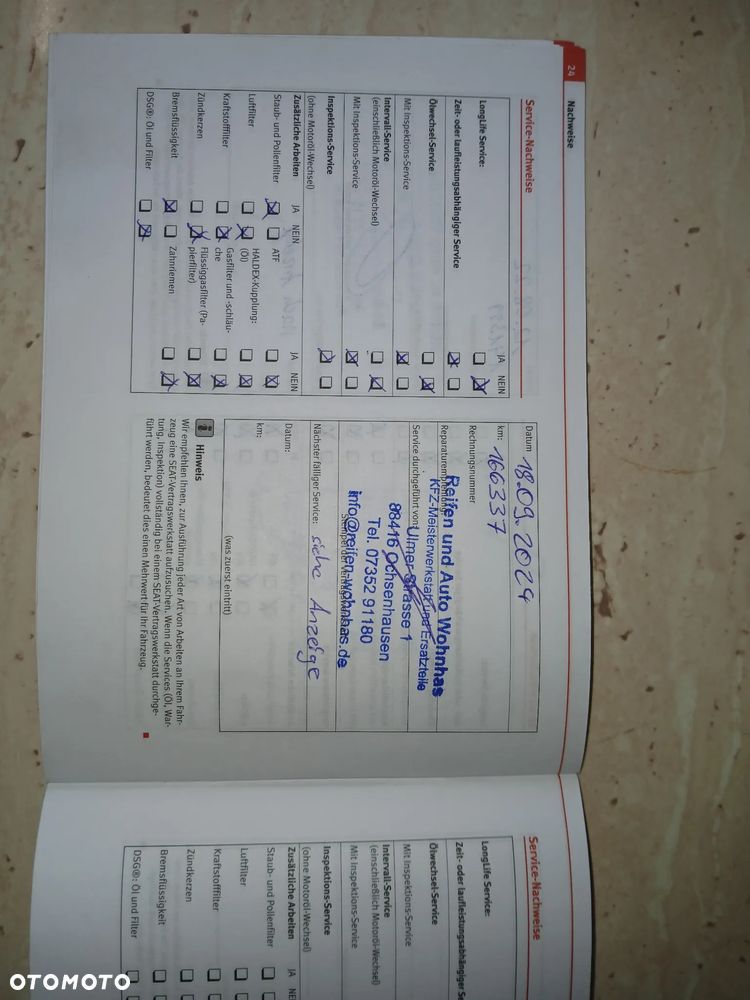 24
Nachweise
Service-Nachweise
JA NEIN
LongLife Service:
Zeit- oder laufleistungsabhängiger Service
Ölwechsel-Service
Mit Inspektions-Service
Intervall-Service
(einschließlich Motoröl-Wechsel)
Mit Inspektions-Service
Inspektions-Service
(ohne Motoröl-Wechsel)
Zusätzliche Arbeiten JA NEIN JA NEIN
Staub- und Pollenfilter ATF
Luftfilter HALDEX-Kupplung:
(Öl)
Kraftstofffilter Gasfilter und -schläu-
che
Zündkerzen Flüssiggasfilter (Pa-
pierfilter)
Bremsflüssigkeit Zahnriemen
DSG®: Öl und Filter
Datum 18.09.2024
km: 166337
Rechnungsnummer
Reparaturempfehlung
Reifen und Auto Wohnhas
KFZ-Meisterwerkstatt und Ersatzteile
Service durchgeführt von:
Ulmer Strasse 1
88416 Ochsenhausen
Tel. 07352 91180
info@reifen-wohnhas.de
Nächster fälliger Service: siehe Anzeige
Datum:
km:
(was zuerst eintritt)
i Hinweis
Wir empfehlen Ihnen, zur Ausführung jeder Art von Arbeiten an Ihrem Fahr-
zeug eine SEAT-Vertragswerkstatt aufzusuchen. Wenn die Services (Öl, War-
tung, Inspektion) vollständig bei einem SEAT-Vertragswerkstatt durchge-
führt werden, bedeutet dies einen Mehrwert für Ihr Fahrzeug.
Service-Nachweise
LongLife Service:
Zeit- oder laufleistungsabhängiger Se
Ölwechsel-Service
Mit Inspektions-Service
Intervall-Service
(einschließlich Motoröl-Wechsel)
Mit Inspektions-Service
Inspektions-Service
(ohne Motoröl-Wechsel)
Zusätzliche Arbeiten JA NE
Staub- und Pollenfilter
Luftfilter
Kraftstofffilter
Zündkerzen
Bremsflüssigkeit
DSG®: Öl und Filter
OTOMOTO